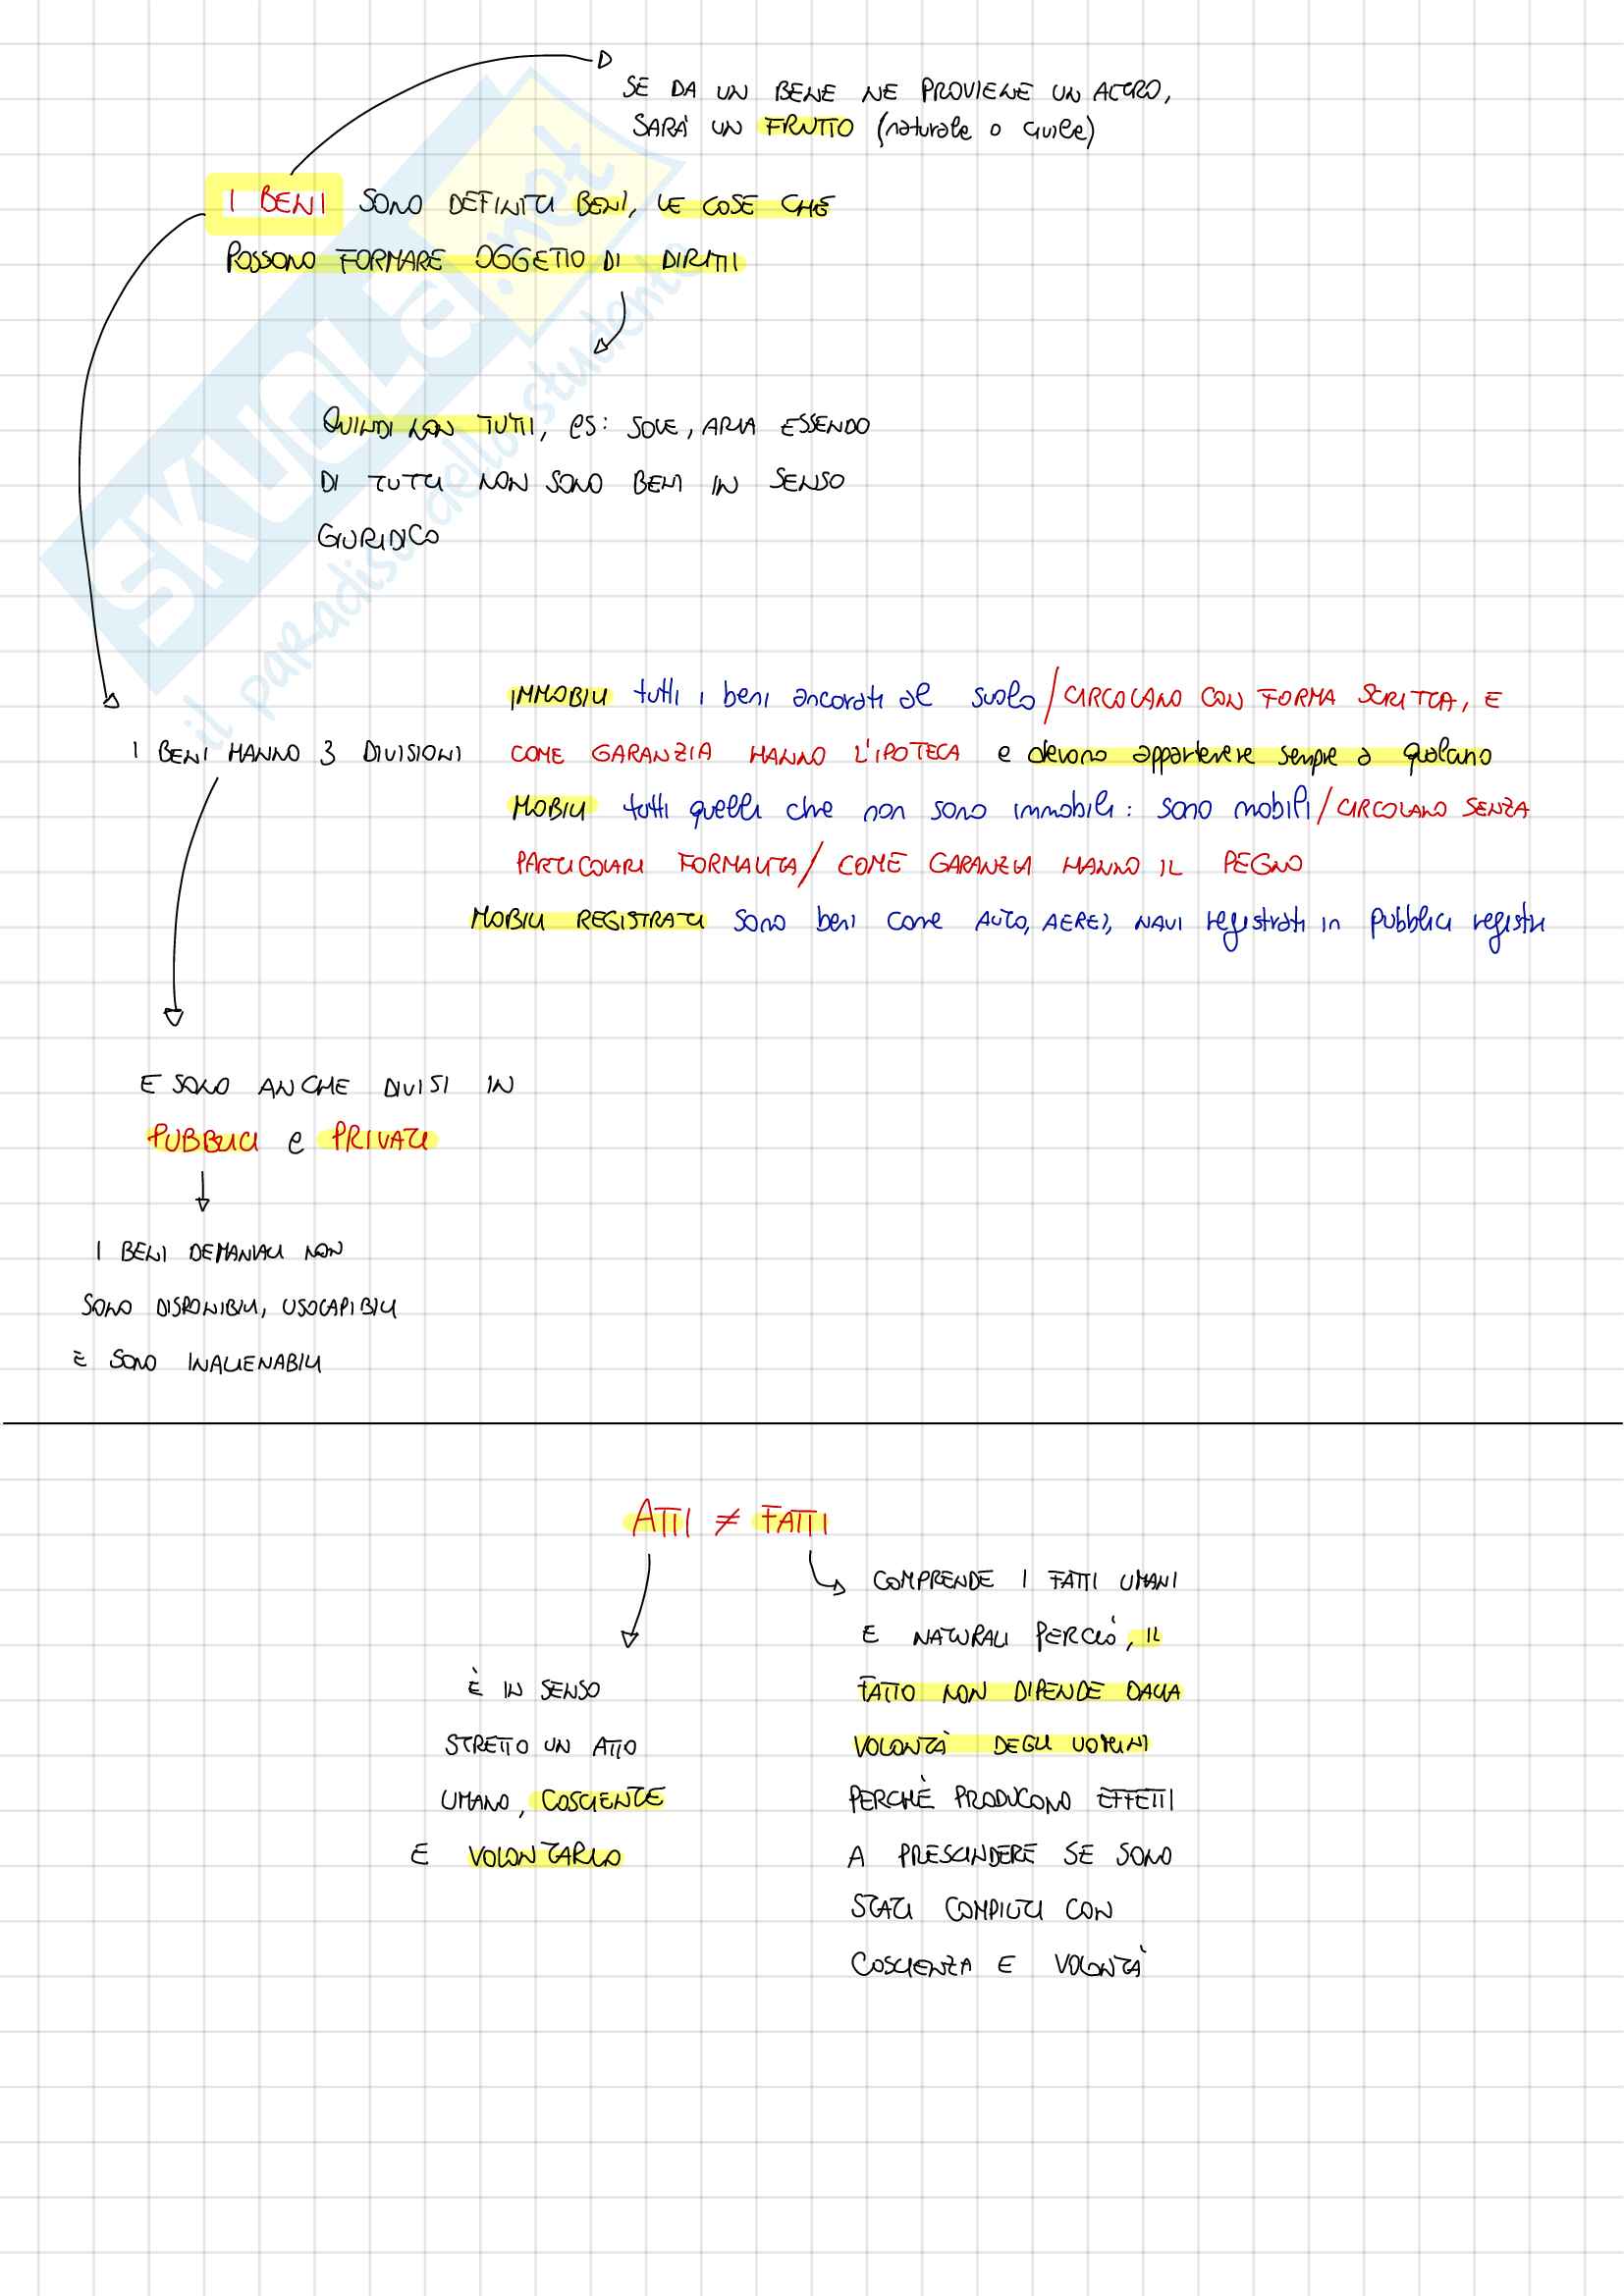 SE DA UN BENE NE PROVIENE UN ALTRO,
SARÀ UN FRUTTO (naturale o civile)
I BENI SONO DEFINITI BENI, LE COSE CHE
POSSONO FORMARE OGGETTO DI DIRITTI
QUINDI NON TUTTI, es: SOLE, ARIA ESSENDO
DI TUTTI NON SONO BENI IN SENSO
GIURIDICO
IMMOBILI tutti i beni ancorati al suolo / CIRCOLANO CON FORMA SCRITTA, E
I BENI HANNO 3 DIVISIONI COME GARANZIA HANNO L'IPOTECA e devono appartenere sempre a qualcuno
MOBILI tutti quelli che non sono immobili: sono mobili / CIRCOLANO SENZA
PARTICOLARI FORMALITA / COME GARANZIA HANNO IL PEGNO
MOBILI REGISTRATI sono beni come AUTO, AEREI, NAVI registrati in pubblici registri
E SONO ANCHE DIVISI IN
PUBBLICI e PRIVATI
I BENI DEMANIALI NON
SONO DISPONIBILI, USOCAPIBILI
E SONO INALIENABILI
ATTI ≠ FATTI
COMPRENDE I FATTI UMANI
E NATURALI PERCIÒ, IL
FATTO NON DIPENDE DALLA
VOLONTÀ DEGLI UOMINI
PERCHÈ PRODUCONO EFFETTI
A PRESCINDERE SE SONO
STATI COMPIUTI CON
COSCIENZA E VOLONTÀ
È IN SENSO
STRETTO UN ATTO
UMANO, COSCIENTE
E VOLONTARIO
SKUOLA.net
il paradiso dello studente